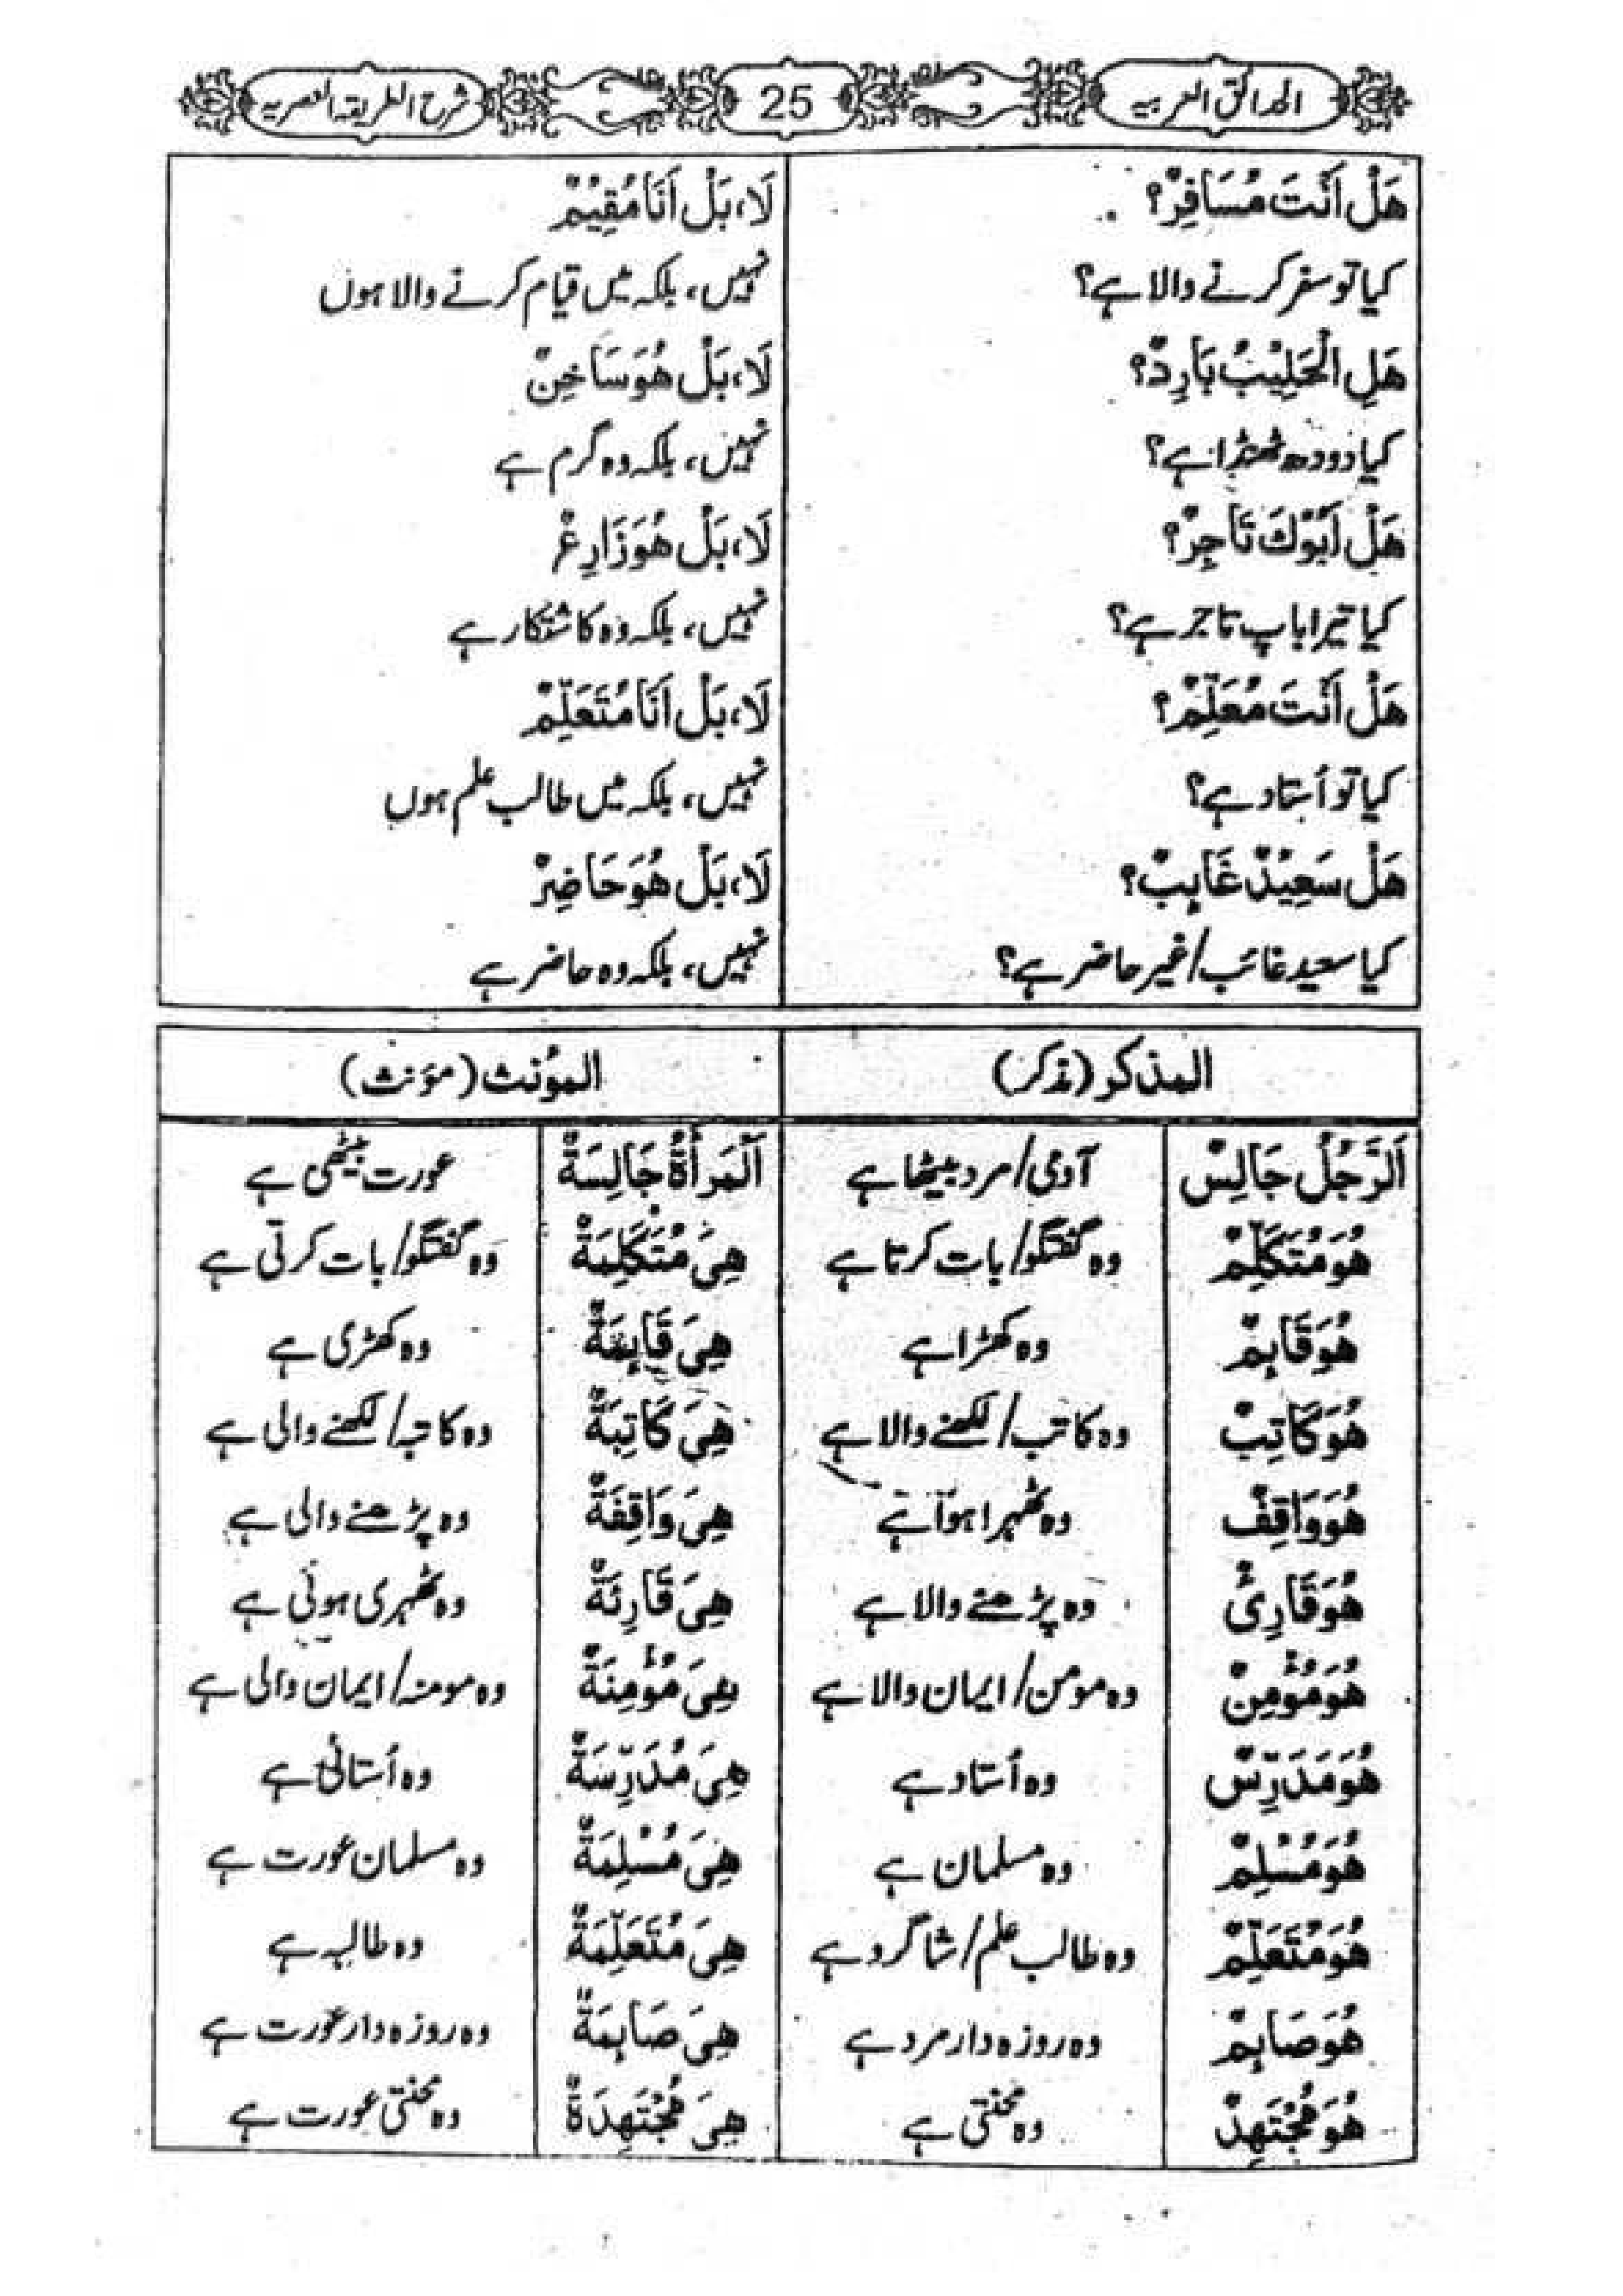 الحدائق العربیہ
25
شرح الطریقہ العصریہ
هَلْ أَنْتَ مُسَافِرٌ؟
لَا، بَلْ أَنَا مُقِيْمٌ
کیا تو سفر کرنے والا ہے؟
نہیں، بلکہ میں قیام کرنے والا ہوں
هَلِ الْحَلِيْبُ بَارِدٌ؟
لَا، بَلْ هُوَ سَاخِنٌ
کیا دودھ ٹھنڈا ہے؟
نہیں، بلکہ وہ گرم ہے
هَلْ أَبُوْكَ تَاجِرٌ؟
لَا، بَلْ هُوَ زَارِعٌ
کیا تیرا باپ تاجر ہے؟
نہیں، بلکہ وہ کاشتکار ہے
هَلْ أَنْتَ مُعَلِّمٌ؟
لَا، بَلْ أَنَا مُتَعَلِّمٌ
کیا تو اُستاد ہے؟
نہیں، بلکہ میں طالب علم ہوں
هَلْ سَعِيْدٌ غَايِبٌ؟
لَا، بَلْ هُوَ حَاضِرٌ
کیا سعید غائب/غیر حاضر ہے؟
نہیں، بلکہ وہ حاضر ہے
المذكر (مذکر)
المؤنث (مؤنث)
اَلرَّجُلُ جَالِسٌ آدمی/مرد بیٹھا ہے اَلْمَرْأَةُ جَالِسَةٌ عورت بیٹھی ہے
هُوَ مُتَكَلِّمٌ وہ گفتگو/بات کرتا ہے هِيَ مُتَكَلِّمَةٌ وہ گفتگو/بات کرتی ہے
هُوَ قَايِمٌ وہ کھڑا ہے هِيَ قَايِمَةٌ وہ کھڑی ہے
هُوَ كَاتِبٌ وہ کاتب/لکھنے والا ہے هِيَ كَاتِبَةٌ وہ کاتبہ/لکھنے والی ہے
هُوَ وَاقِفٌ وہ ٹھہرا ہوا ہے هِيَ وَاقِفَةٌ وہ پڑھنے والی ہے
هُوَ قَارِئٌ وہ پڑھنے والا ہے هِيَ قَارِئَةٌ وہ ٹھہری ہوئی ہے
هُوَ مُؤْمِنٌ وہ مومن/ایمان والا ہے هِيَ مُؤْمِنَةٌ وہ مومنہ/ایمان والی ہے
هُوَ مُدَرِّسٌ وہ اُستاد ہے هِيَ مُدَرِّسَةٌ وہ اُستانی ہے
هُوَ مُسْلِمٌ وہ مسلمان ہے هِيَ مُسْلِمَةٌ وہ مسلمان عورت ہے
هُوَ مُتَعَلِّمٌ وہ طالب علم/شاگرد ہے هِيَ مُتَعَلِّمَةٌ وہ طالبہ ہے
هُوَ صَايِمٌ وہ روزہ دار مرد ہے هِيَ صَايِمَةٌ وہ روزہ دار عورت ہے
هُوَ مُجْتَهِدٌ وہ محنتی ہے هِيَ مُجْتَهِدَةٌ وہ محنتی عورت ہے